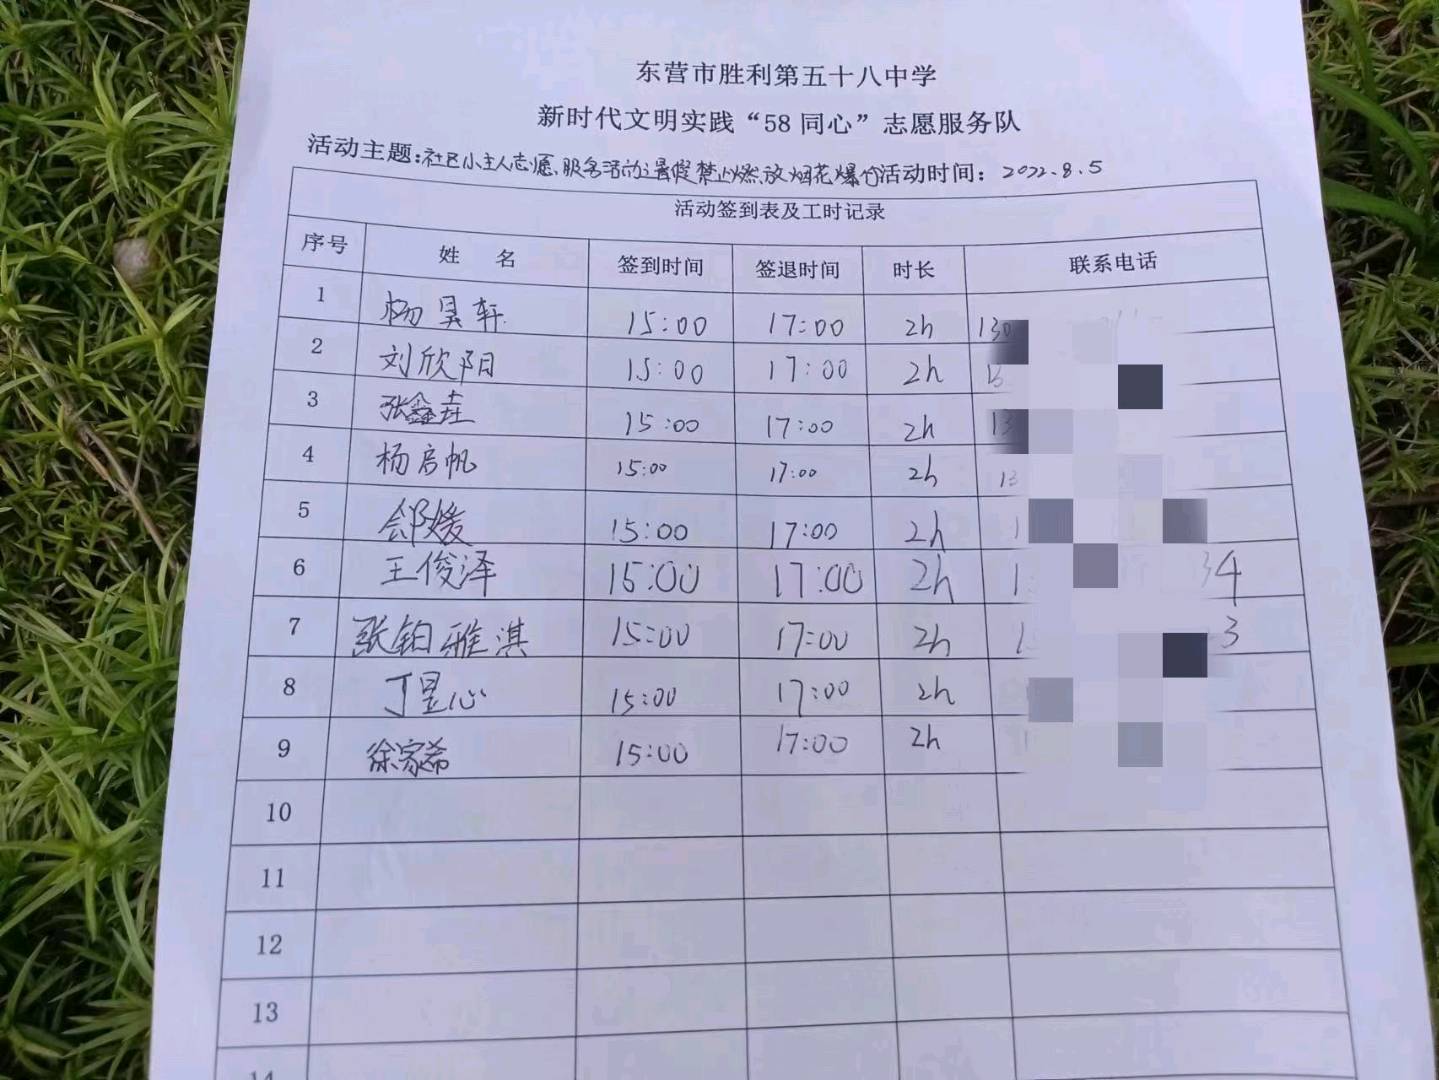 东营市胜利第五十八中学
新时代文明实践“58 同心”志愿服务队
活动主题:社区小主人志愿服务活动暑假禁止燃放烟花爆竹活动时间: 2022.8.5
活动签到表及工时记录
序号 姓 名 签到时间 签退时间 时长 联系电话
1 杨昊轩 15:00 17:00 2h 130
2 刘欣阳 15:00 17:00 2h
3 张鑫垚 15:00 17:00 2h 13
4 杨启帆 15:00 17:00 2h 13
5 郐媛 15:00 17:00 2h 1
6 王俊泽 15:00 17:00 2h 1 34
7 张铂雅淇 15:00 17:00 2h 1 3
8 丁昱心 15:00 17:00 2h
9 徐家希 15:00 17:00 2h
10
11
12
13
14